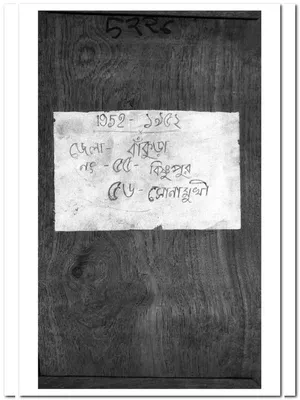 ৫২২৮
1952 - ১৯৫২
জেলা - বাঁকুড়া
নং - ৫৫ - বিষ্ণুপুর
৫৬ - সোনামুখী